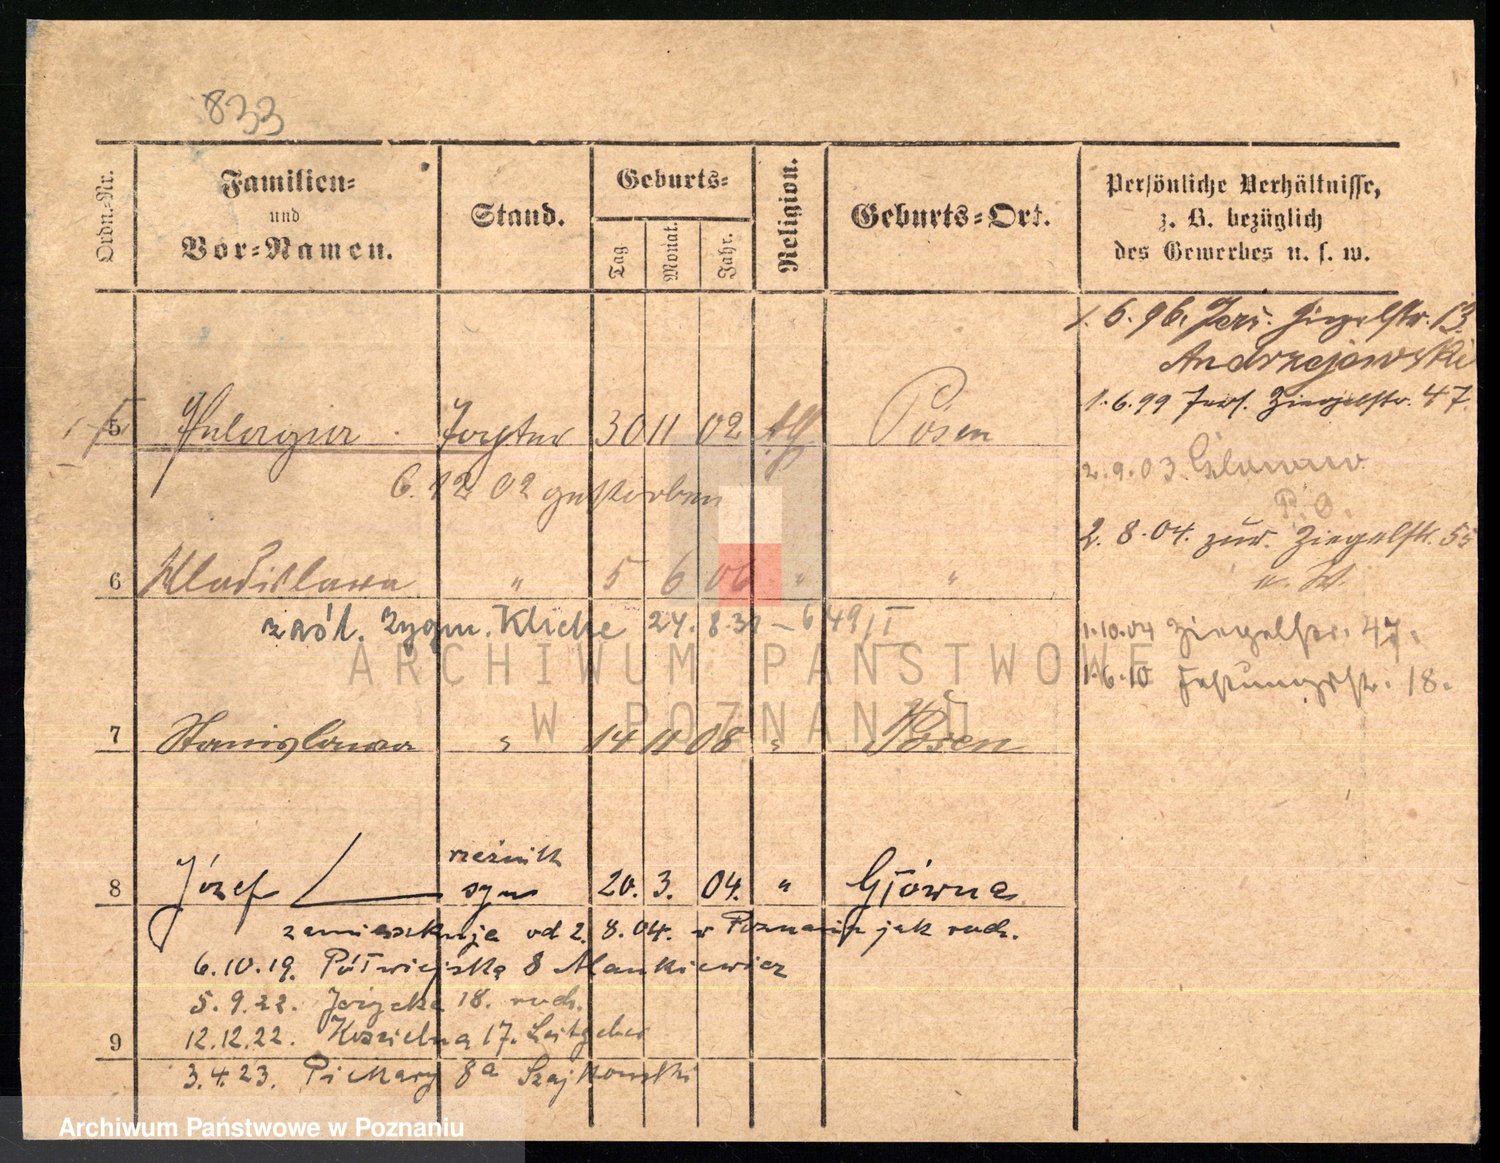 833
Ordn.-Nr.
Familien=
und
Vor=Namen.
Stand.
Geburts=
Tag
Monat.
Jahr.
Religion.
Geburts=Ort.
Persönliche Verhältnisse,
z. B. bezüglich
des Gewerbes u. s. w.
1. 6. 96. Jers. Ziegelstr. 13.
Andrzejewski
1. 6. 99 Jers. Ziegelstr. 47.
5 Pelagia Tochter 30 11 02 Posen
2. 9. 03
P. O.
6. 12 02 gestorben
2. 8. 04. zur. Ziegelstr. 55
6 Wladislawa " 5 6 06 " "
zaśl. Zygm. Kliche 24. 8. 31 - 649/I
1. 10. 04 Ziegelstr. 47.
1. 6. 10 Festungsstr. 18.
ARCHIWUM PAŃSTWOWE
W POZNANIU
7 Stanislawa " 14 11 08 " Posen
rzeźnik
8 Józef syn 20. 3. 04. " Główna
zamieszkuje od 2. 8. 04. w Poznaniu jak rodz.
6. 10. 19. Półwiejska 8 Mankiewicz
5. 9. 22. 18. rodz.
12. 12. 22. Kozielna 17. Leitgeber
9
3. 4. 23. Piekary 8a Szajkowski
Archiwum Państwowe w Poznaniu